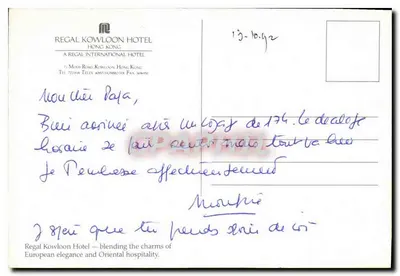 REGAL KOWLOON HOTEL
HONG KONG
A REGAL INTERNATIONAL HOTEL
13-10-92
Mon cher Papa,
Bien arrivée après un voyage de 17h. Le décalage
horaire se fait sentir mais tout va bien
Je t'embrasse affectueusement
J'espère que tu prends soin de toi
Regal Kowloon Hotel — blending the charms of
European elegance and Oriental hospitality.